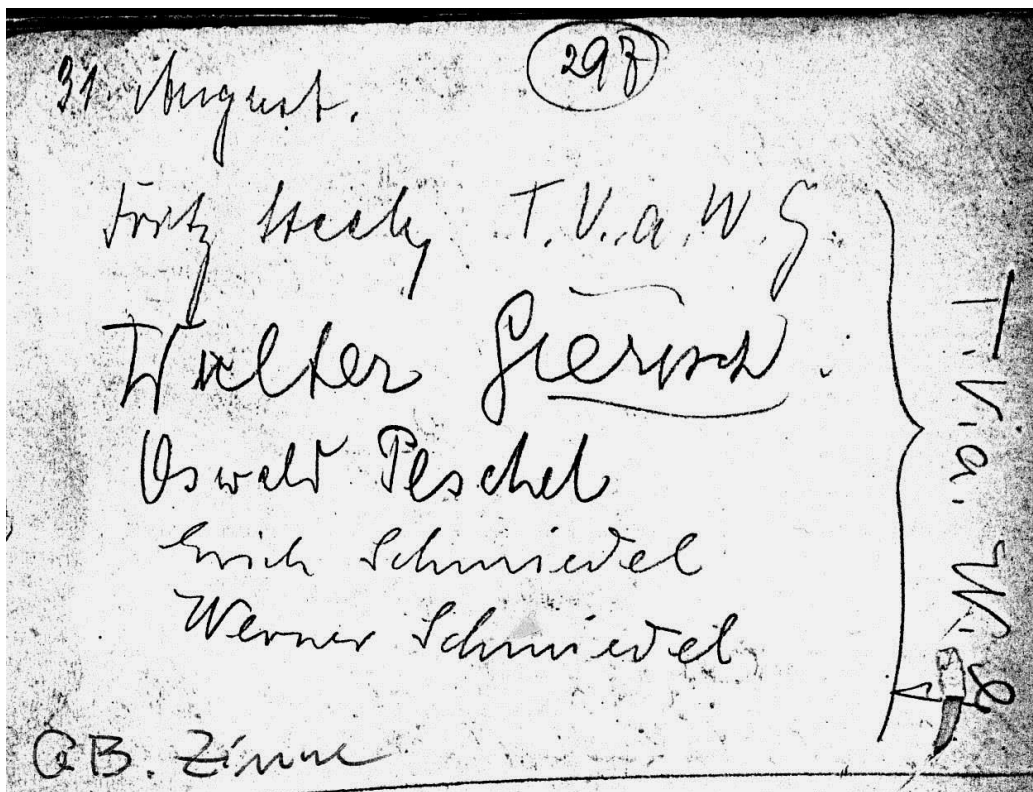 297
31. August.
Fritz T. V. a. W. G.
Walter Gierisch.
Oswald Peschel
Erich Schmiedel
Werner Schmiedel
T. V. a. W. G.
B. Zinne